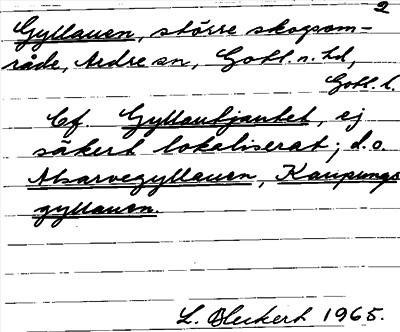 2
Gyllauen, större skogsom-
råde, Ardre sn, Gotl. n. hd,
Gotl. l.
Cf. Gyllaubjauket, ej
säkert lokaliserat; d.o.
Alsarvegyllauen, Kaupungs
gyllauen.
L. Bleckert 1965.